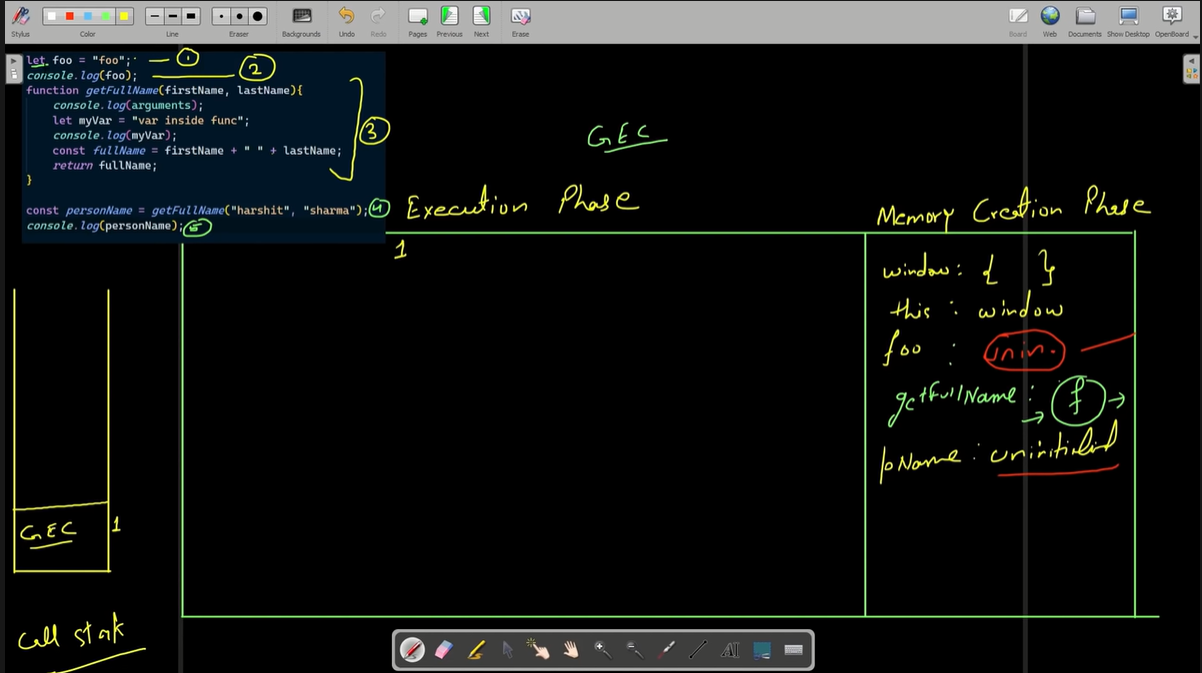 Stylus Color Line Eraser Backgrounds Undo Redo Pages Previous Next Erase Board Web Documents Show Desktop OpenBoard
let foo = "foo"; 1
console.log(foo); 2
function getFullName(firstName, lastName){
console.log(arguments);
let myVar = "var inside func";
console.log(myVar); 3
const fullName = firstName + " " + lastName;
return fullName;
}
const personName = getFullName("harshit", "sharma"); 4
console.log(personName); 5
GEC
Execution Phase
Memory Creation Phase
1
window : { }
this : window
foo : unin.
getFullName : f
pName : uninitialized
GEC 1
Call stack
AI